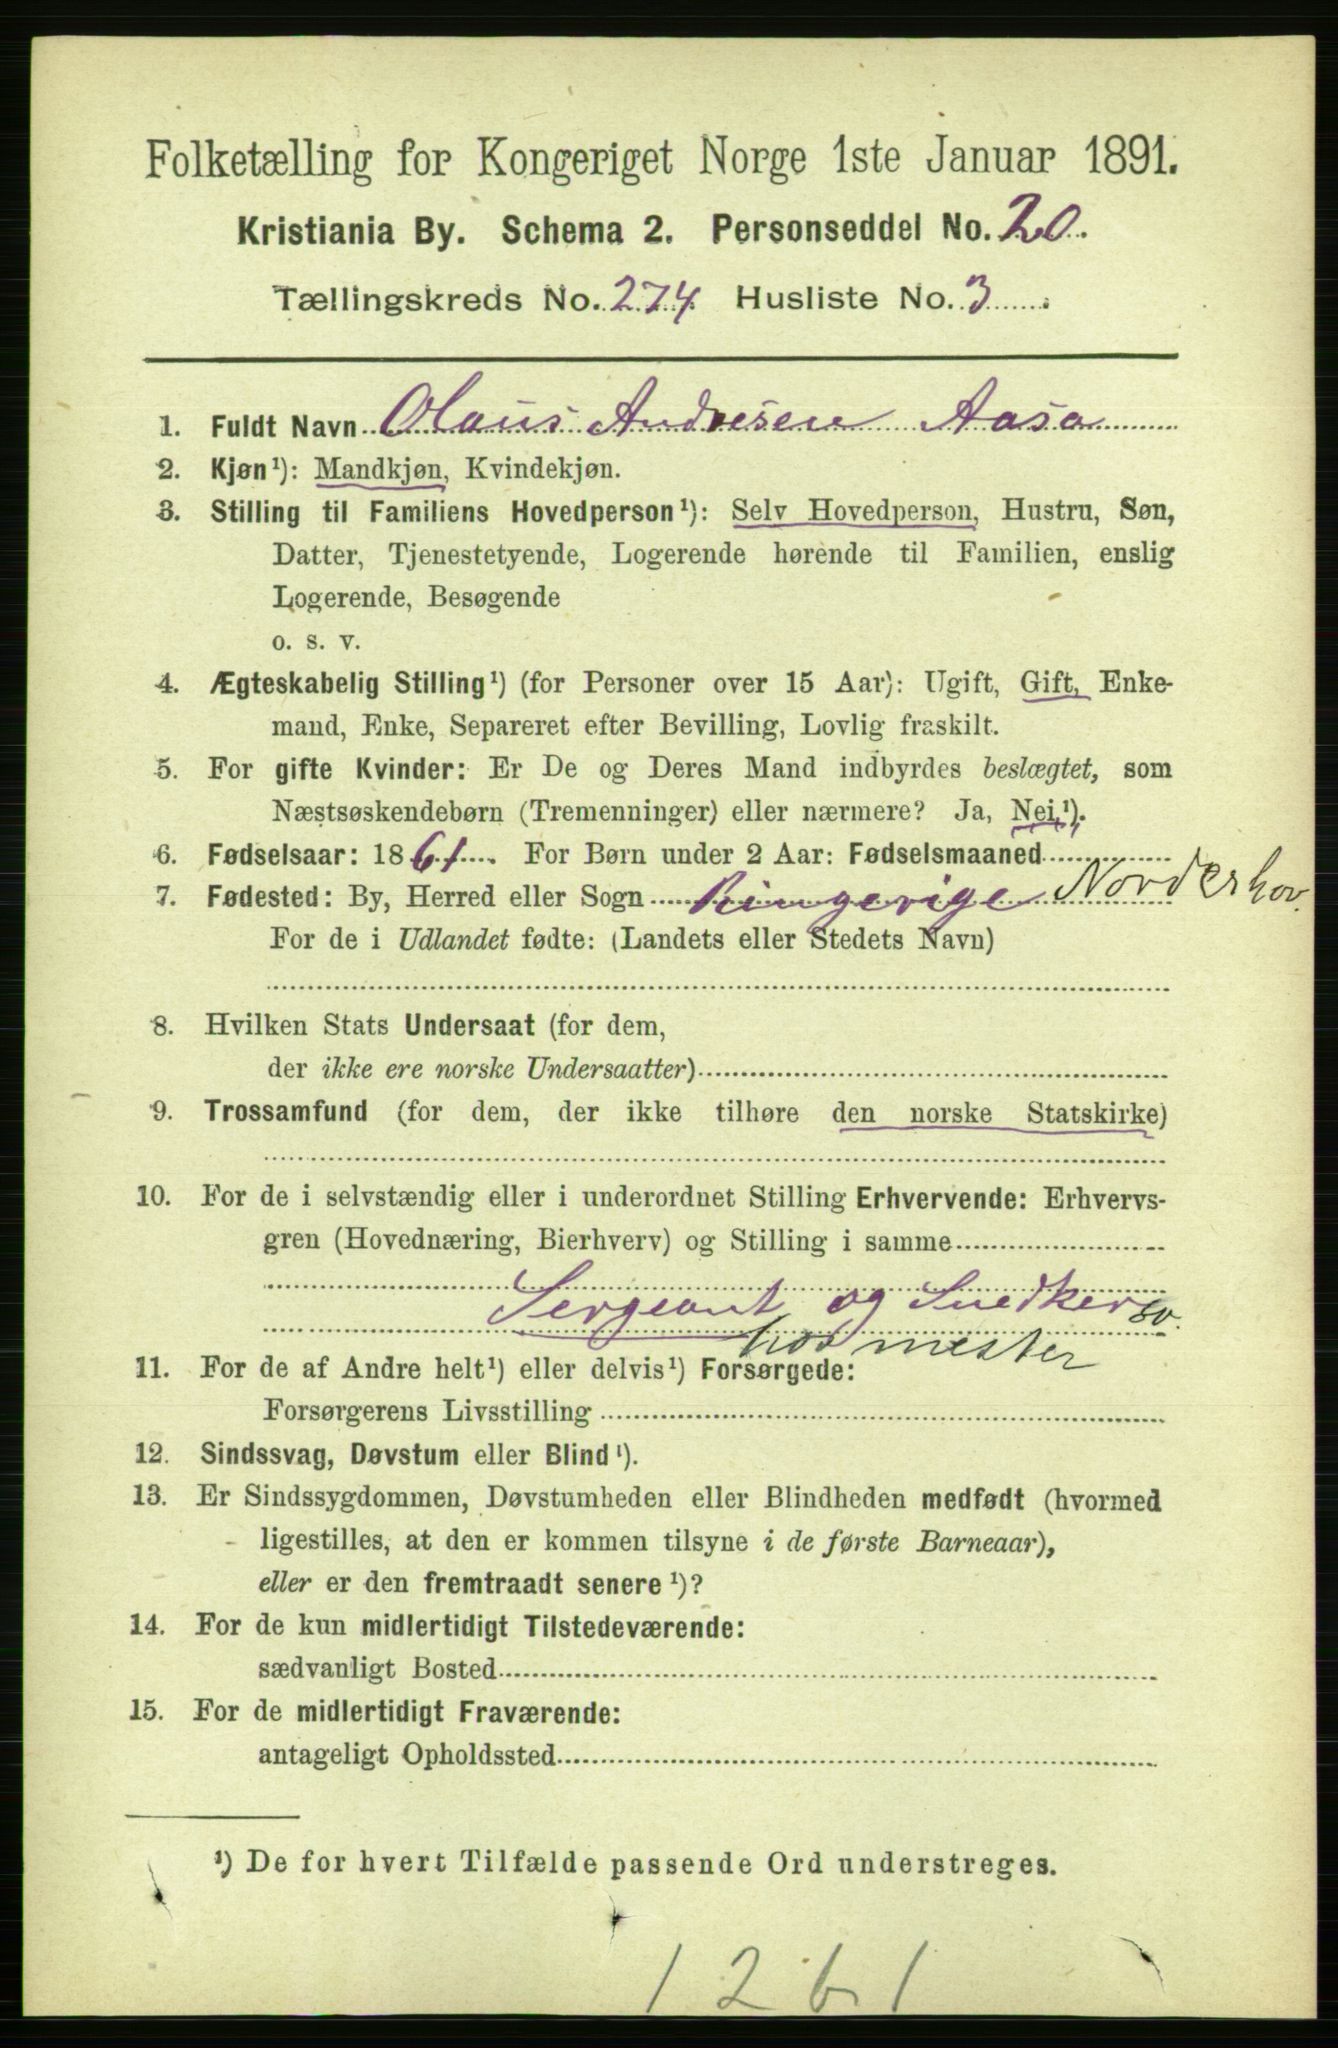 Folketælling for Kongeriget Norge 1ste Januar 1891.
Kristiania By. Schema 2. Personseddel No. 20.
Tællingskreds No. 274 Husliste No. 3.
1. Fuldt Navn Olaus Andresen Aasa
2. Kjøn¹): Mandkjøn, Kvindekjøn.
3. Stilling til Familiens Hovedperson¹): Selv Hovedperson, Hustru, Søn,
Datter, Tjenestetyende, Logerende hørende til Familien, enslig
Logerende, Besøgende
o. s. v.
4. Ægteskabelig Stilling¹) (for Personer over 15 Aar): Ugift, Gift, Enke-
mand, Enke, Separeret efter Bevilling, Lovlig fraskilt.
5. For gifte Kvinder: Er De og Deres Mand indbyrdes beslægtet, som
Næstsøskendebørn (Tremenninger) eller nærmere? Ja, Nei¹).
6. Fødselsaar: 1861. For Børn under 2 Aar: Fødselsmaaned
7. Fødested: By, Herred eller Sogn Ringerige Norderhov.
For de i Udlandet fødte: (Landets eller Stedets Navn)
8. Hvilken Stats Undersaat (for dem,
der ikke ere norske Undersaatter)
9. Trossamfund (for dem, der ikke tilhøre den norske Statskirke)
10. For de i selvstændig eller i underordnet Stilling Erhvervende: Erhvervs-
gren (Hovednæring, Bierhverv) og Stilling i samme
Sergeant og Snedkersv.
hos mester
11. For de af Andre helt¹) eller delvis¹) Forsørgede:
Forsørgerens Livsstilling
12. Sindssvag, Døvstum eller Blind¹).
13. Er Sindssygdommen, Døvstumheden eller Blindheden medfødt (hvormed
ligestilles, at den er kommen tilsyne i de første Barneaar),
eller er den fremtraadt senere¹)?
14. For de kun midlertidigt Tilstedeværende:
sædvanligt Bosted
15. For de midlertidigt Fraværende:
antageligt Opholdssted
¹) De for hvert Tilfælde passende Ord understreges.
1261